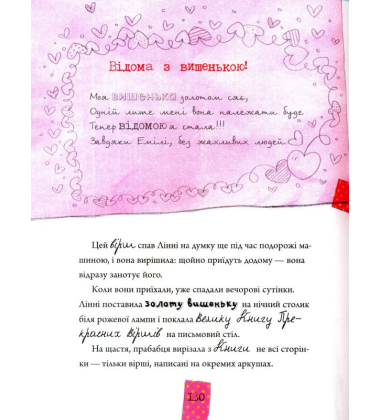 Відома з вишенькою!
Моя вишенька золотом сяє,
Одній лише мені вона належати буде
Тепер ВІДОМОЮ я стала!!!
Завдяки Емілі, без жахливих людей
Цей вірш спав Лінні на думку ще під час подорожі ма-
шиною, і вона вирішила: щойно приїдуть додому — вона
відразу занотує його.
Коли вони приїхали, уже спадали вечорові сутінки.
Лінні поставила золоту вишеньку на нічний столик
біля рожевої лампи і поклала велику Книгу Пре-
красних Віршів на письмовий стіл.
На щастя, прабабця вирізала з Книги не всі сторін-
ки — тільки вірші, написані на окремих аркушах.
130